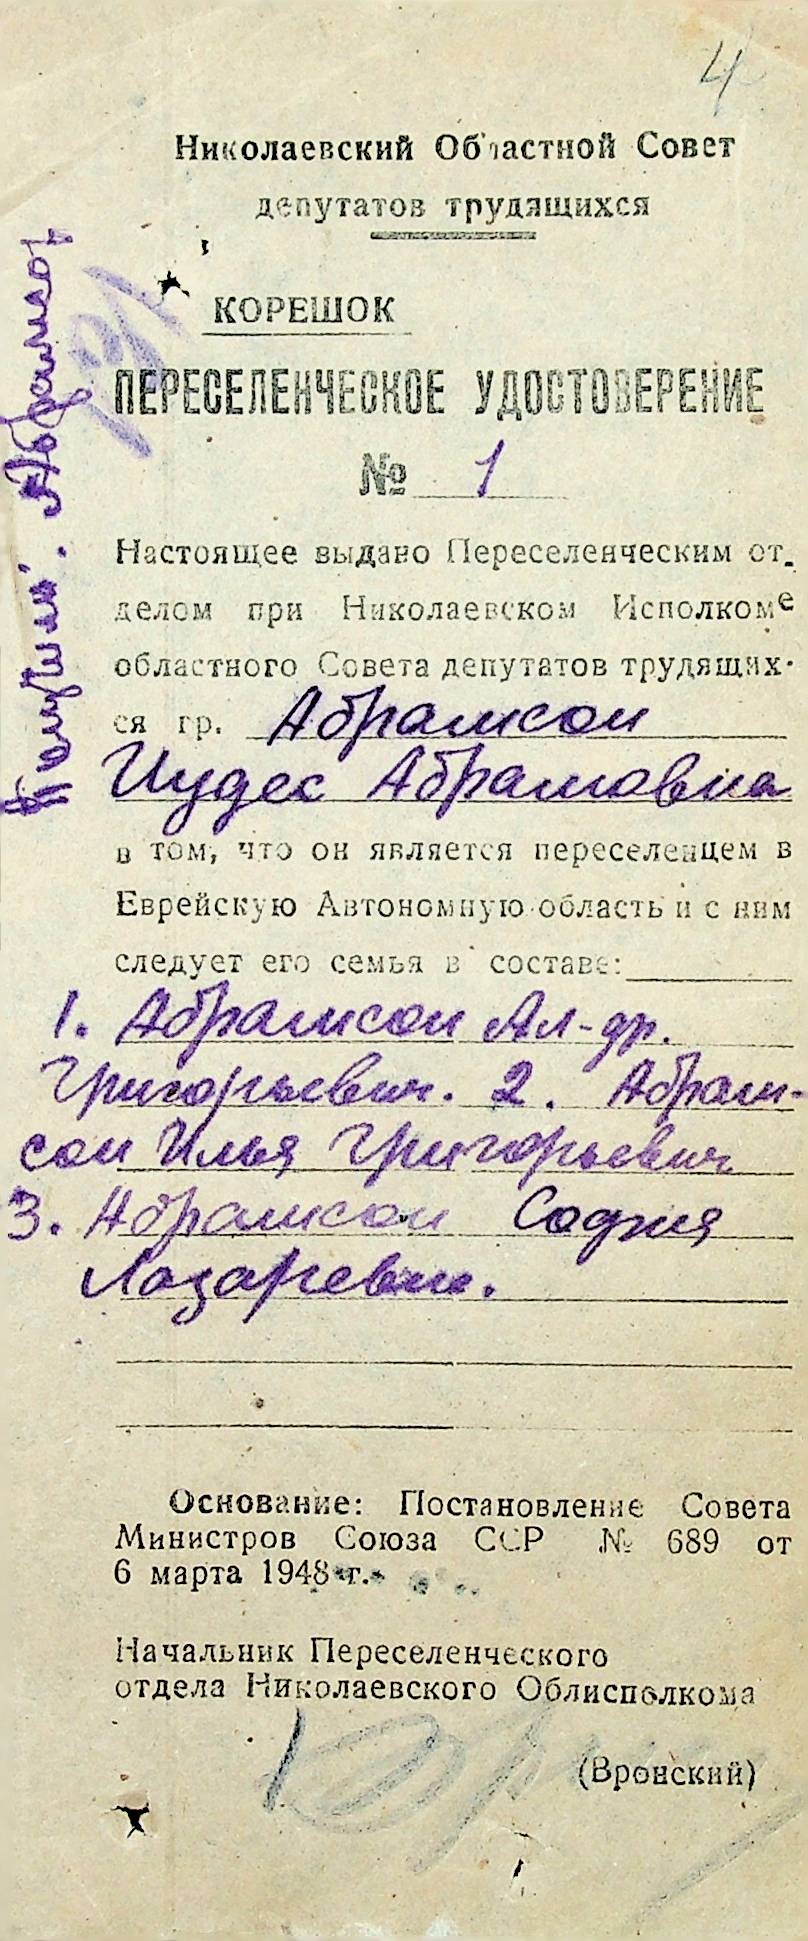 4
Николаевский Областной Совет
депутатов трудящихся
КОРЕШОК
ПЕРЕСЕЛЕНЧЕСКОЕ УДОСТОВЕРЕНИЕ
№ 1
Настоящее выдано Переселенческим от-
делом при Николаевском Исполкоме
областного Совета депутатов трудящих-
ся гр. Абрамсон
Иудес Абрамовна
в том, что он является переселенцем в
Еврейскую Автономную область и с ним
следует его семья в составе:
1. Абрамсон Ал-др.
Григорьевич. 2. Абрам-
сон Илья Григорьевич
3. Абрамсон София
Лазаревн.
Основание: Постановление Совета
Министров Союза ССР № 689 от
6 марта 1948 г.
Начальник Переселенческого
отдела Николаевского Облисполкома
(Вронский)
Получил: Абрамсон